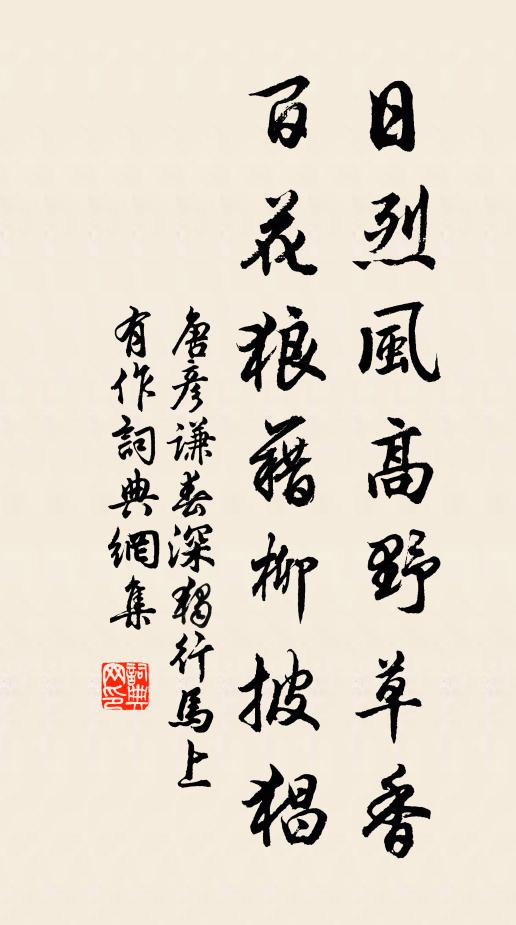 日烈風高野草香
百花狼藉柳披猖
唐彥謙春深獨行馬上
有作詞典網集
詞典
网印